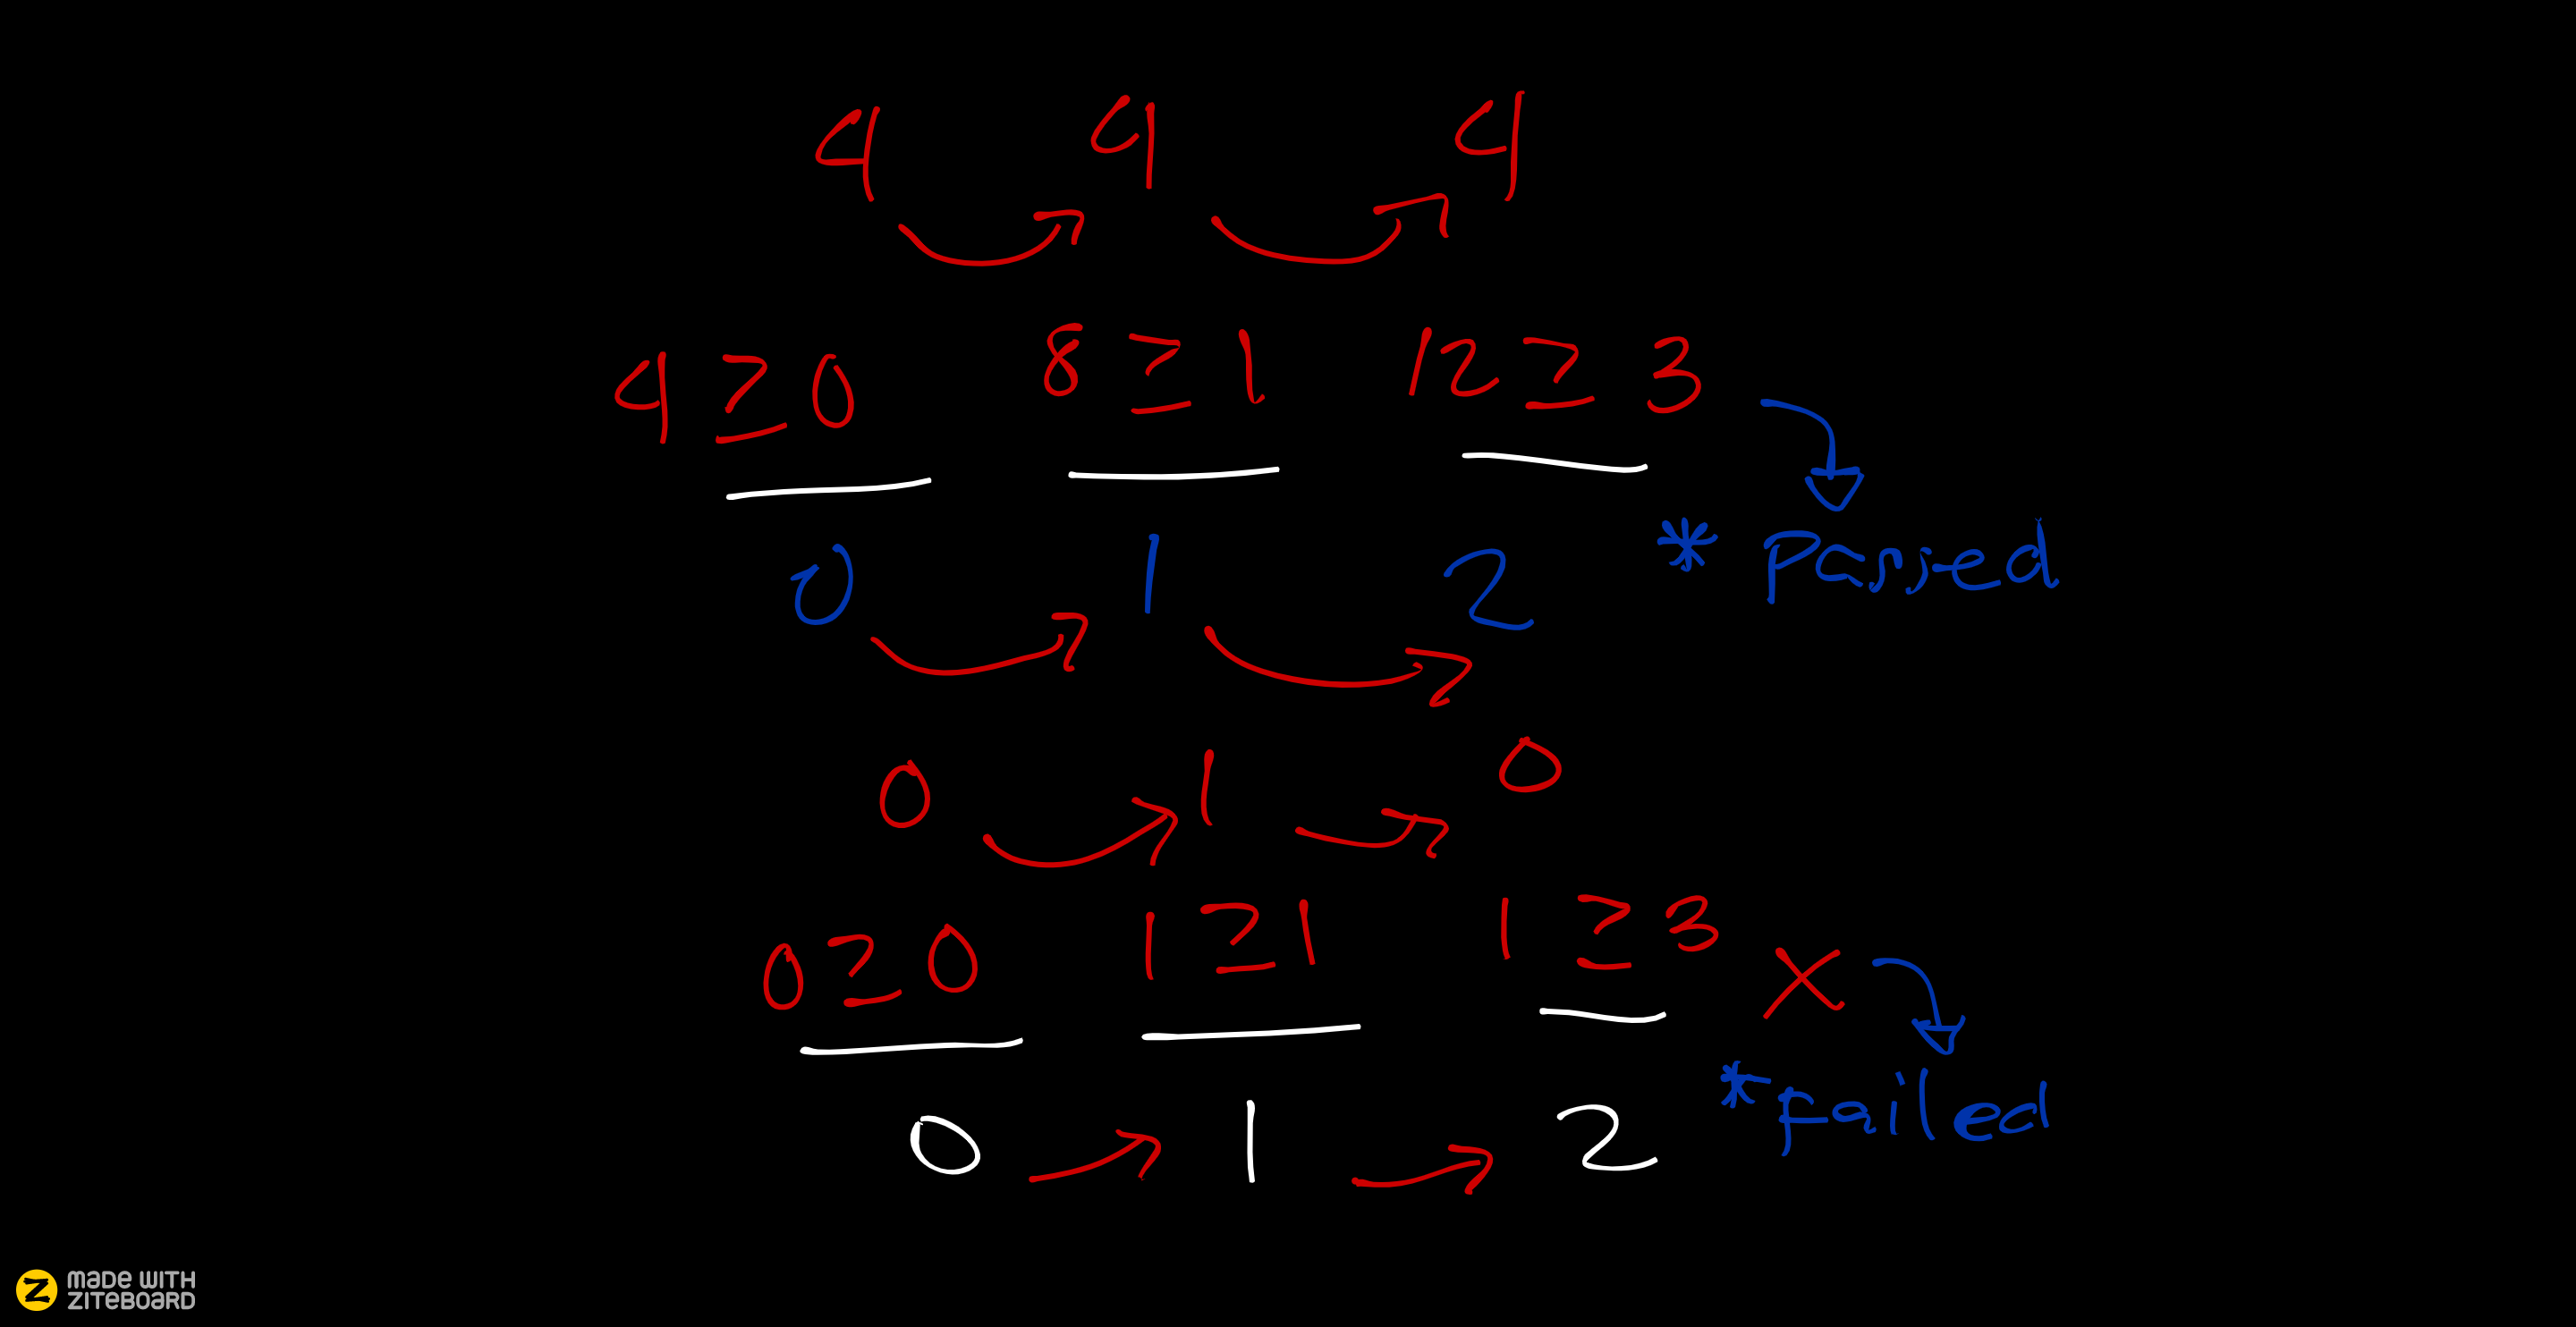 4 4 4
4 ≥ 0 8 ≥ 1 12 ≥ 3
0 1 2 * Passed
0 1 0
0 ≥ 0 1 ≥ 1 1 ≥ 3 X
0 1 2 * Failed
MADE WITH
ZITEBOARD